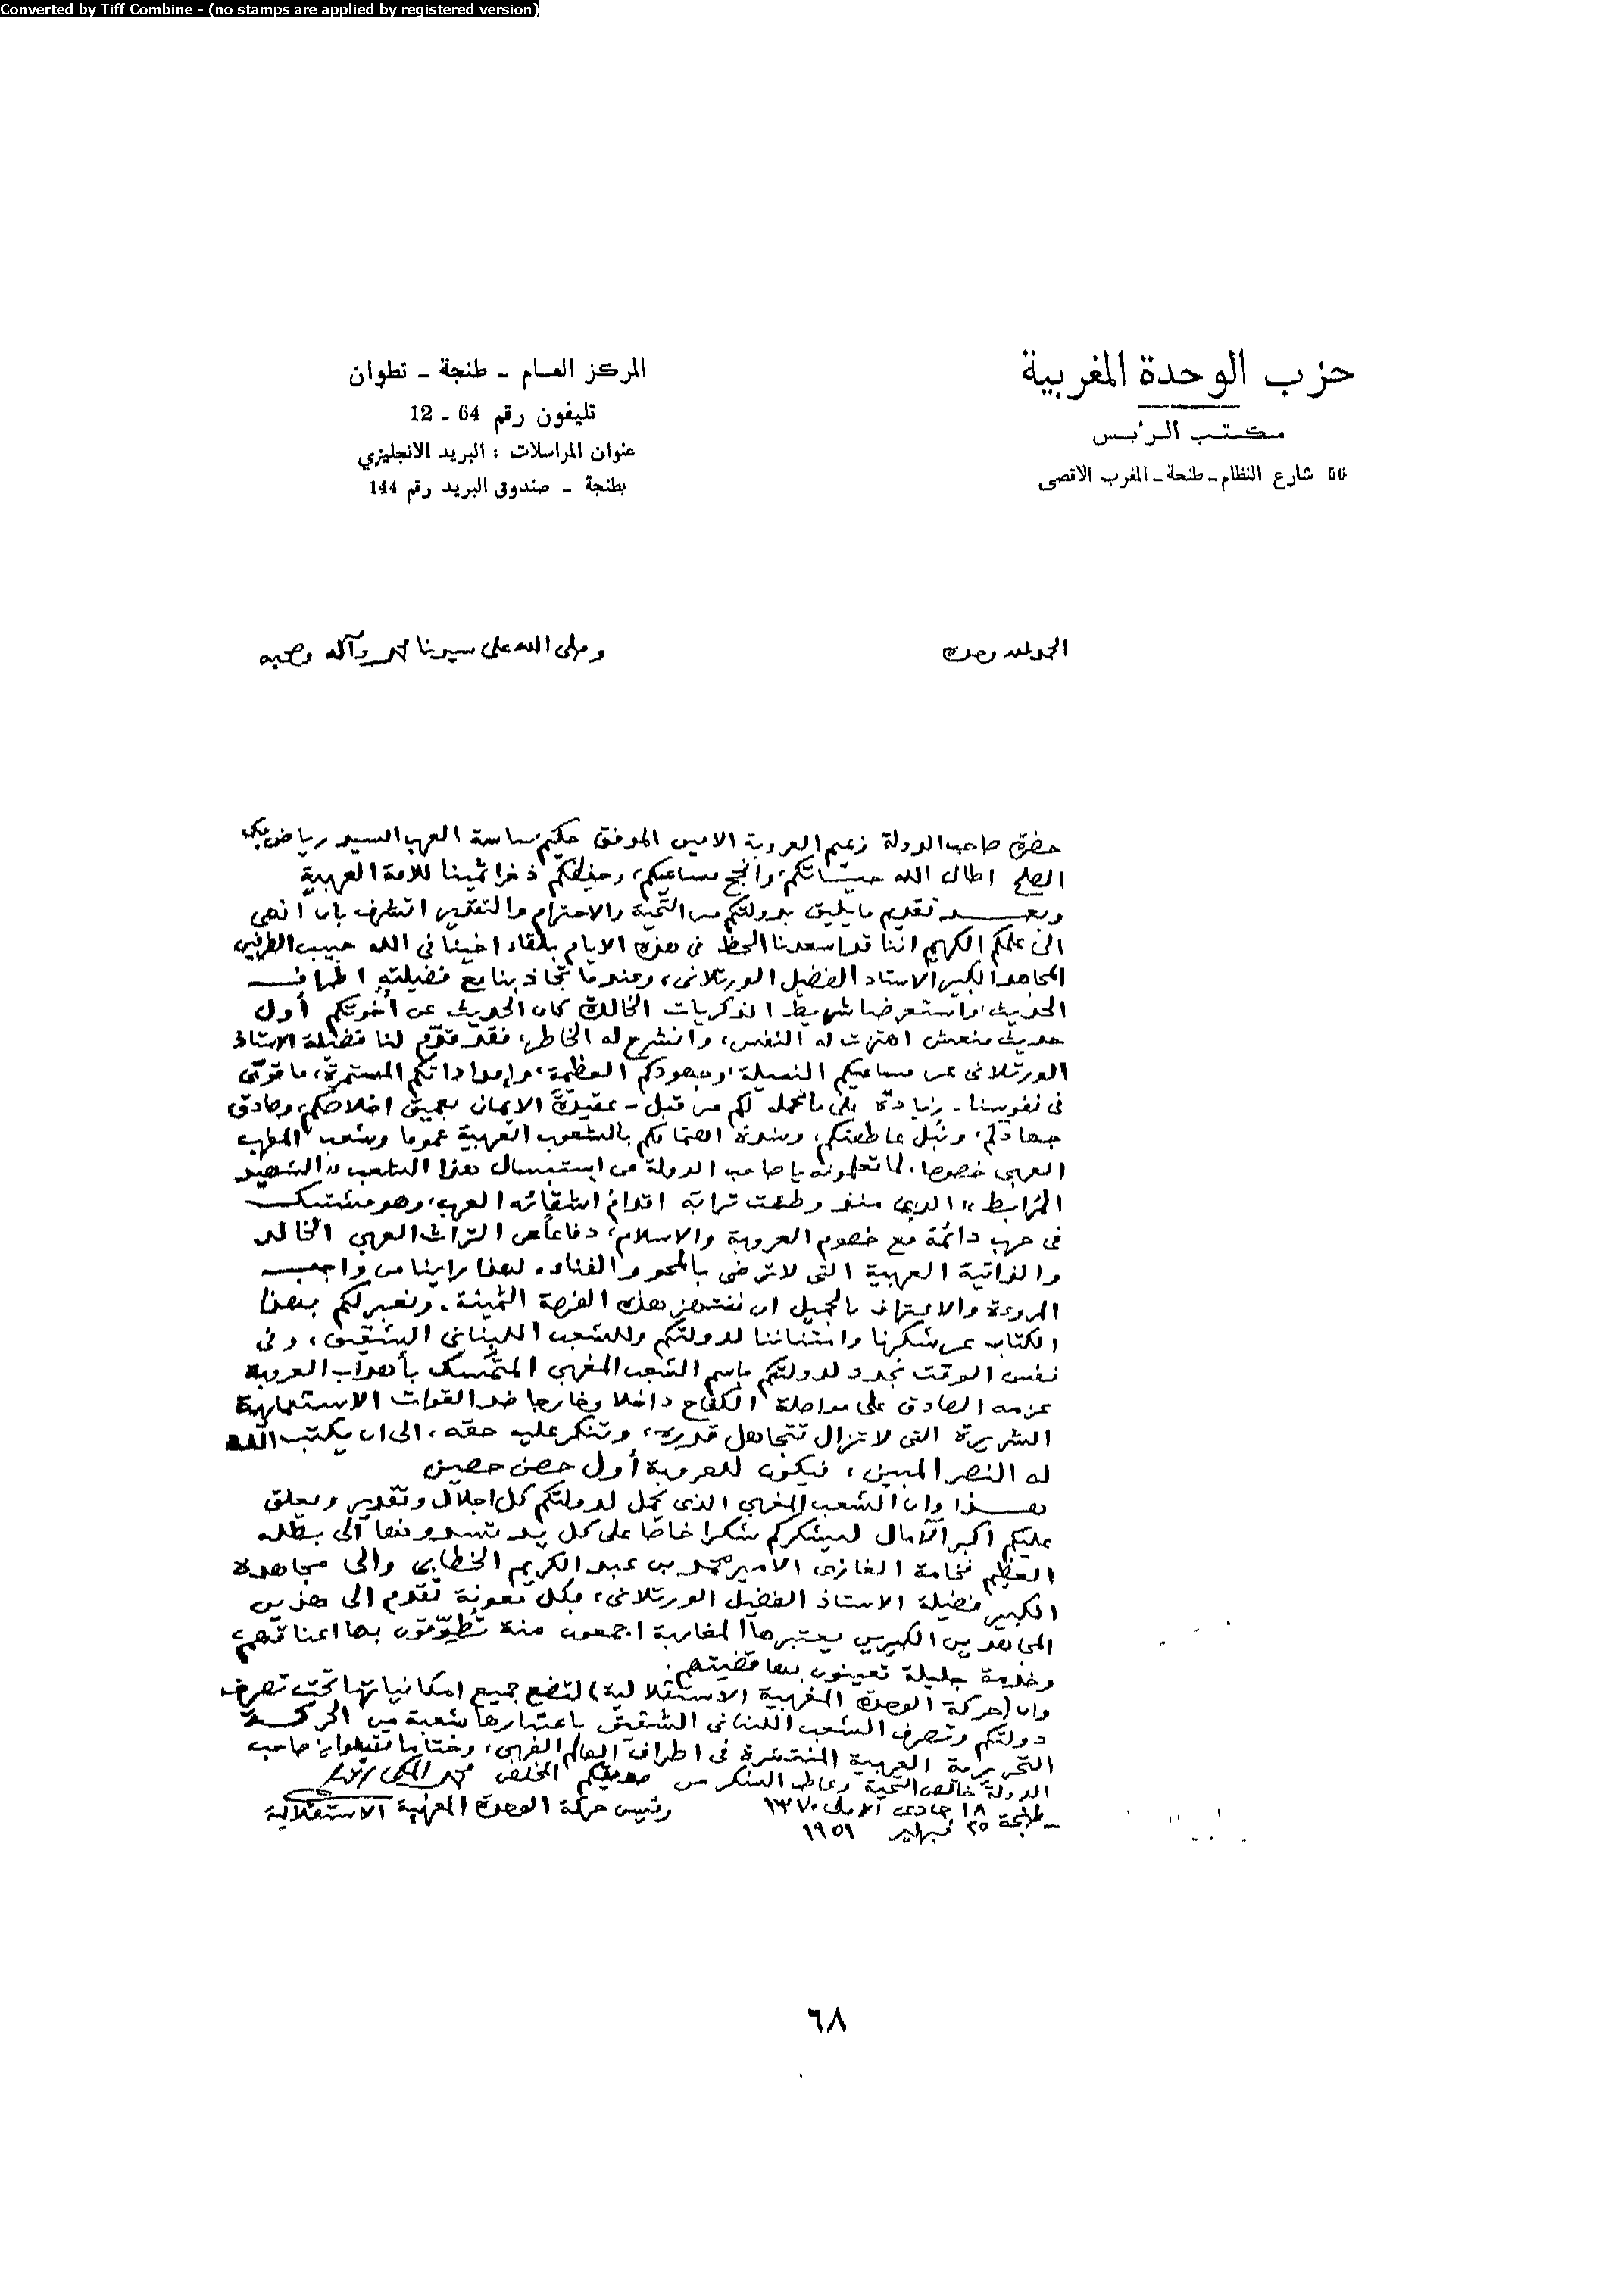 Converted by Tiff Combine - (no stamps are applied by registered version)
حزب الوحدة المغربية
مكتب الرئيس
66 شارع النظام - طنجة - المغرب الاقصى
المركز العام - طنجة - تطوان
تليفون رقم 64 - 12
عنوان المراسلات : البريد الانجليزي
بطنجة - صندوق البريد رقم 144
الحمد لله وحده
وصلى الله على سيدنا محمد وآله وصحبه
حضرة صاحب الدولة زعيم العروبة الامين الموفق حكيم ساسة العرب السيد رياض بك
الصلح اطال الله حياتكم، وانجح مساعيكم، وحفظكم ذخرا ثمينا للامة العربية
وبعد تقديم ما يليق بدولتكم من التحية والاحترام والتقدير اتشرف بان انهي
الى علمكم الكريم اننا قد اسعدنا الحظ في هذه الايام بلقاء اخينا في الله حبيب الطرفين
المجاهد الكبير الاستاذ الفضيل الورتلاني، وعندما تجاذبنا مع فضيلته اطراف
الحديث، واستعرضنا شريط الذكريات الخالدة كان الحديث عن أخوتكم أول
حديث منعش اهتزت له النفس، وانشرح له الخاطر، فقد قدم لنا فضيلة الاستاذ
الورتلاني عن مساعيكم النبيلة، وجهودكم العظيمة، وإمداداتكم المستمرة، ما قوى
في نفوسنا - زيادة على ما نحمله لكم من قبل - عقيدة الايمان بعميق اخلاصكم، وصادق
جهادكم، ونبل عاطفتكم، وشدة اهتمامكم بالشعوب العربية عموما وشعب المغرب
العربي خصوصا، لما تعلمونه يا صاحب الدولة من استبسال هذا الشعب "الشهيد
المرابط" الذي منذ وطئت ترابه اقدام اشقائه العرب، وهو مشتبك
في حرب دائمة مع خصوم العروبة والاسلام، دفاعا عن التراث العربي الخالد
والذاتية العربية التى لا ترضى بالمحو والفناء. لهذا راينا من واجب
المروءة والاعتراف بالجميل ان ننتهز هذه الفرصة الثمينة. ونعبر لكم بهذا
الكتاب عن شكرنا وامتناننا لدولتكم وللشعب اللبناني الشقيق، وفي
نفس الوقت نجدد لدولتكم باسم الشعب المغربي المتمسك بأهداب العروبة
عزمه الصادق على مواصلة الكفاح داخلا وخارجا ضد القوات الاستعمارية
الشريرة التى لا تزال تتجاهل قدره، وتنكر عليه حقه، الى ان يكتب الله
له النصر المبين، فيكون للعروبة أول حصن حصين
هذا وان الشعب المغربي الذي يحمل لدولتكم كل اجلال وتقدير ويعلق
عليكم اكبر الآمال ليشكركم شكرا خاصا على كل يد تسدونها الى بطله
العظيم فخامة الغازى الامير محمد بن عبد الكريم الخطابي والى مجاهده
الكبير فضيلة الاستاذ الفضيل الورتلاني، فكل معونة تقدم الى هذين
المجاهدين الكبيرين يعتبرها المغاربة اجمعون منة تطوّقون بها اعناقهم
وخدمة جليلة تعينون بها قضيتهم.
وان (حركة الوحدة المغربية الاستقلالية) لتضع جميع امكانياتها تحت تصرف
دولتكم وتصرف الشعب اللبناني الشقيق باعتبارها شعبة من الحركة
التحريرية العربية المنتشرة في اطراف العالم العربي، وختاما تقبلوا يا صاحب
الدولة خالص التحية وعاطر الشكر من صديقكم المخلص محمد المكي الناصري
رئيس حركة الوحدة المغربية الاستقلالية
- طنجة ١٨ جمادى الاولى ١٣٧٠
٢٥ فبراير ١٩٥١
٦٨